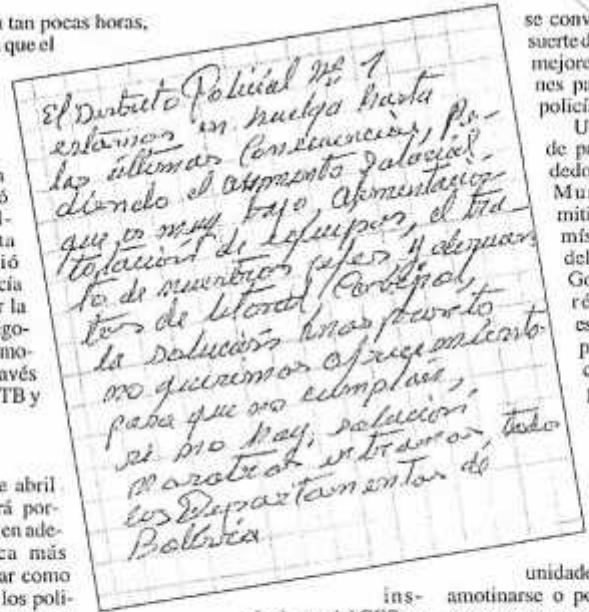 tan pocas horas,
que el
ió
cía
r la
ego-
mo-
avés
TB y
e abril
rá por-
en ade-
ca más
ar como
los poli-
El Distrito Policial Nº 1
estamos en huelga hasta
las últimas Consecuencias, Pe-
diendo el aumento Salarial
que es muy bajo Alimentación
Dotación de equipos, el tra
to de nuestros jefes y
de
la solución mas pronto
no queremos ofrecimiento
para que no cumplan,
si no hay, solución
nosotros entramos, todo
los Departamentos de
Bolivia
ins-
se conv
suerte d
mejore
nes pa
policí
U
de p
dedo
Mu
miti
mís
del
Go
ré
es
p
c
unidade
amotinarse o po